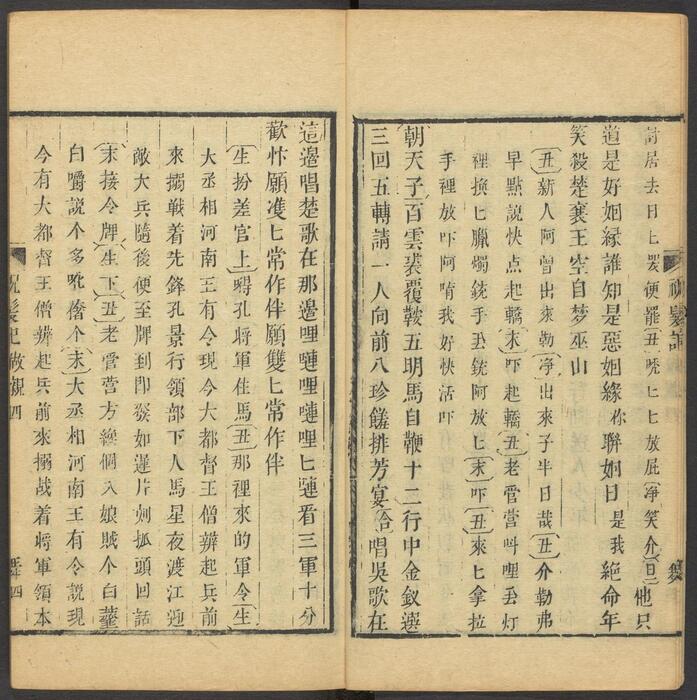 居去日匕罢便罷〔丑〕唬匕匕放屁〔淨笑介〕〔旦〕他只
道是好姻緣誰知是惡姻緣你聯姻日是我絕命年
笑殺楚襄王空自梦巫山
〔丑〕新人阿曾出來勒〔净〕出來子半日哉〔丑〕介勒弗
早點説快点起轎〔末〕吓起轎〔丑〕老雷當呌哩丢灯
裡換匕臘燭銃手丢銃阿放匕〔末〕吓〔丑〕來匕拿拉
手裡放吓阿唷我好快活吓
朝天子百雲裘覆鞍五明馬自鞭十二行中金釵選
三回五轉請一人向前八珍饈排芳宴〔合〕唱吳歌在
這邊唱楚歌在那邊哩嗹哩嗹哩匕嗹看三軍十分
歡忭願雙匕常作伴願雙匕常作伴
〔生扮差官上〕嘚孔將軍住馬〔丑〕那裡來的軍令〔生〕
大丞相河南王有令現今大都督王僧辨起兵前
來搦戰着先鋒孔景行領部下人馬星夜渡江迎
敵大兵隨後便至牌到即發如違片刻孤頭回話
〔末接令牌〕〔生下〕〔丑〕老雷當方纔個入娘賊个白
白嚼説个多〔末〕大丞相河南王有令説現
今有大都督王僧辨起兵前來搦战着將軍領本
祝髮記 做親 四